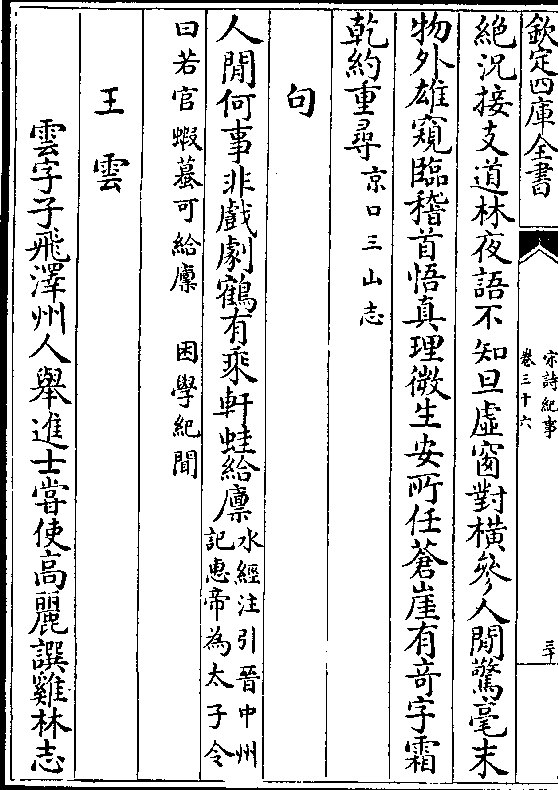 欽定四庫全書
宋詩紀事
卷三十六
三十
絶況接支道林夜語不知旦虛窗對橫參人間驚毫末
物外雄窺臨稽首悟真理微生安所任蒼崖有竒字霜
乾約重尋京口三山志
句
人間何事非戲劇鶴有乘軒蛙給廩水經注引晉中州
記惠帝為太子令
曰若官蝦蟇可給廩　困學紀聞
王雲
雲字子飛澤州人舉進士嘗使高麗譔雞林志